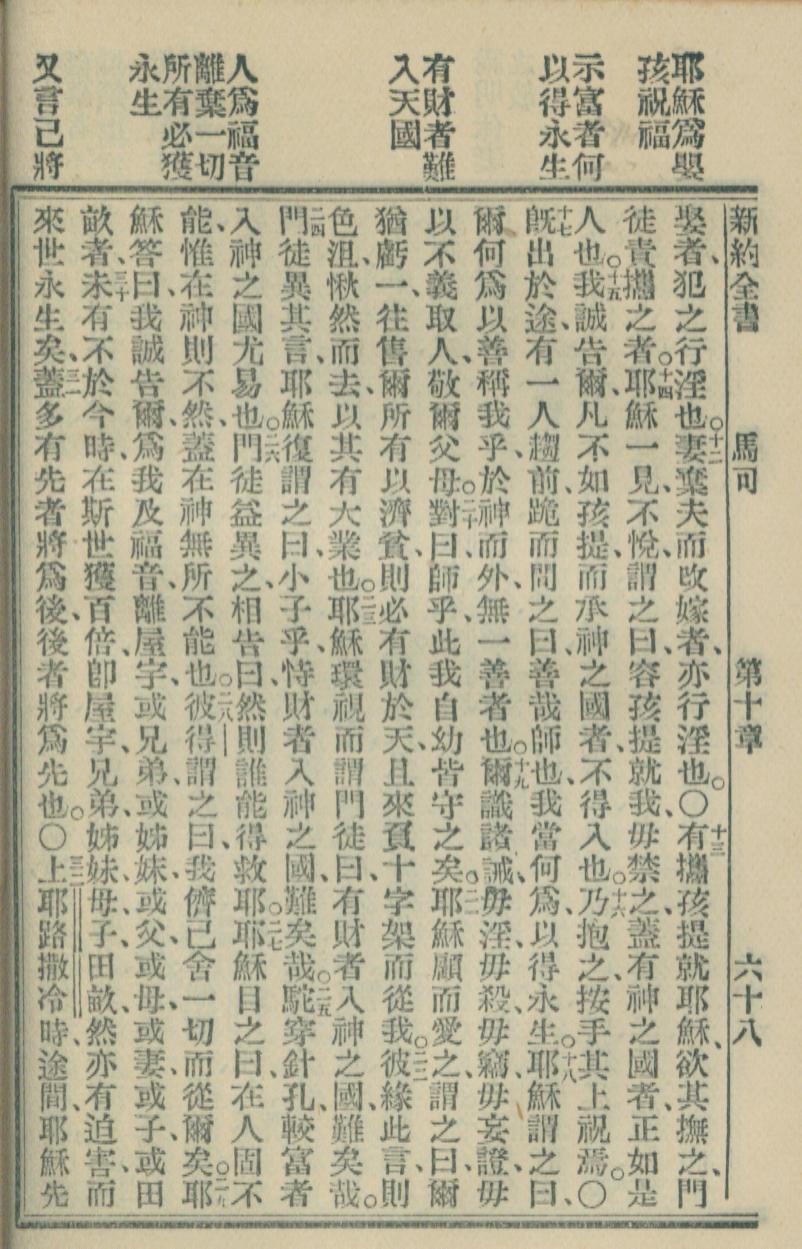 耶穌爲嬰
孩祝福
示富者何
以得永生
有財者難
入天國
人爲福音
離棄一切
所有必獲
永生
又言己將
新約全書 馬可 第十章 六十八
娶者、犯之行淫也。十二妻棄夫而改嫁者、亦行淫也。〇十三有攜孩提就耶穌、欲其撫之、門
徒責攜之者。十四耶穌一見、不悅、謂之曰、容孩提就我、毋禁之、蓋有神之國者、正如是
人也。十五我誠告爾、凡不如孩提而承神之國者、不得入也。十六乃抱之、按手其上祝焉。〇
十七旣出於途、有一人趨前、跪而問之曰、善哉師也、我當何爲、以得永生。十八耶穌謂之曰、
爾何爲以善稱我乎、於神而外、無一善者也。十九爾識諸誡、毋淫、毋殺、毋竊、毋妄證、毋
以不義取人、敬爾父母。二十對曰、師乎、此我自幼皆守之矣。二一耶穌顧而愛之、謂之曰、爾
猶虧一、往售爾所有以濟貧、則必有財於天、且來負十字架而從我。二二彼緣此言、則
色沮、愀然而去、以其有大業也。二三耶穌環視而謂門徒曰、有財者入神之國、難矣哉。
二四門徒異其言、耶穌復謂之曰、小子乎、恃財者入神之國、難矣哉。二五駝穿針孔、較富者
入神之國尤易也。二六門徒益異之、相告曰、然則誰能得救耶。二七耶穌目之曰、在人固不
能、惟在神則不然、蓋在神無所不能也。二八彼得謂之曰、我儕己舍一切而從爾矣。二九耶
穌答曰、我誠告爾、爲我及福音、離屋宇、或兄弟、或姊妹、或父、或母、或妻、或子、或田
畝者、三十未有不於今時、在斯世獲百倍、卽屋宇、兄弟、姊妹、母、子、田畝、然亦有迫害、而
來世永生矣。三一蓋多有先者將爲後、後者將爲先也。〇三二上耶路撒冷時、途間、耶穌先